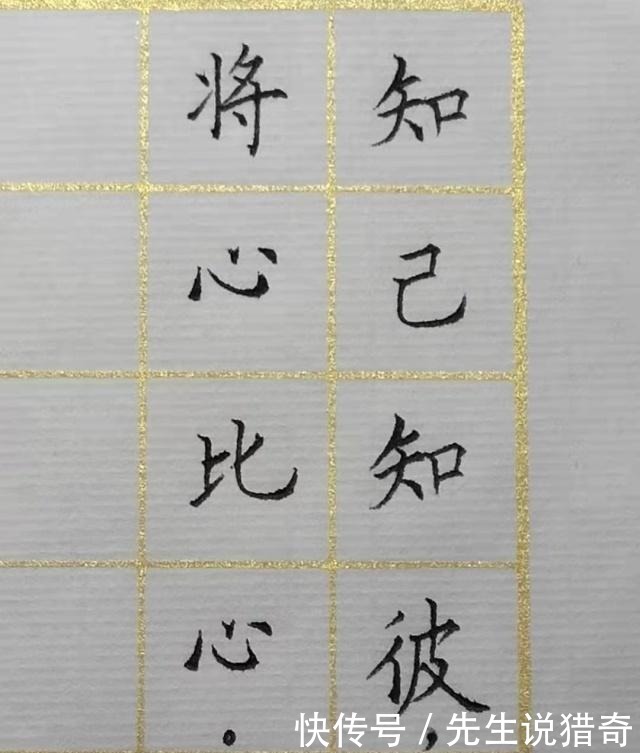 知己知彼，
将心比心。
快传号/先生说猎奇